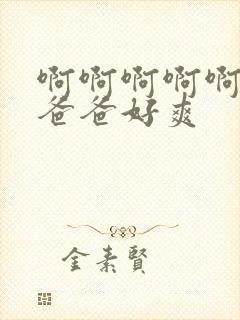 啊啊啊啊啊
爸爸好爽
金素賢